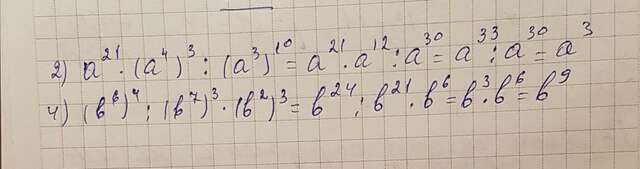 2) a²¹ · (a⁴)³ : (a³)¹⁰ = a²¹ · a¹² : a³⁰ = a³³ : a³⁰ = a³
4) (b⁶)⁴ : (b⁷)³ · (b²)³ = b²⁴ : b²¹ · b⁶ = b³ · b⁶ = b⁹